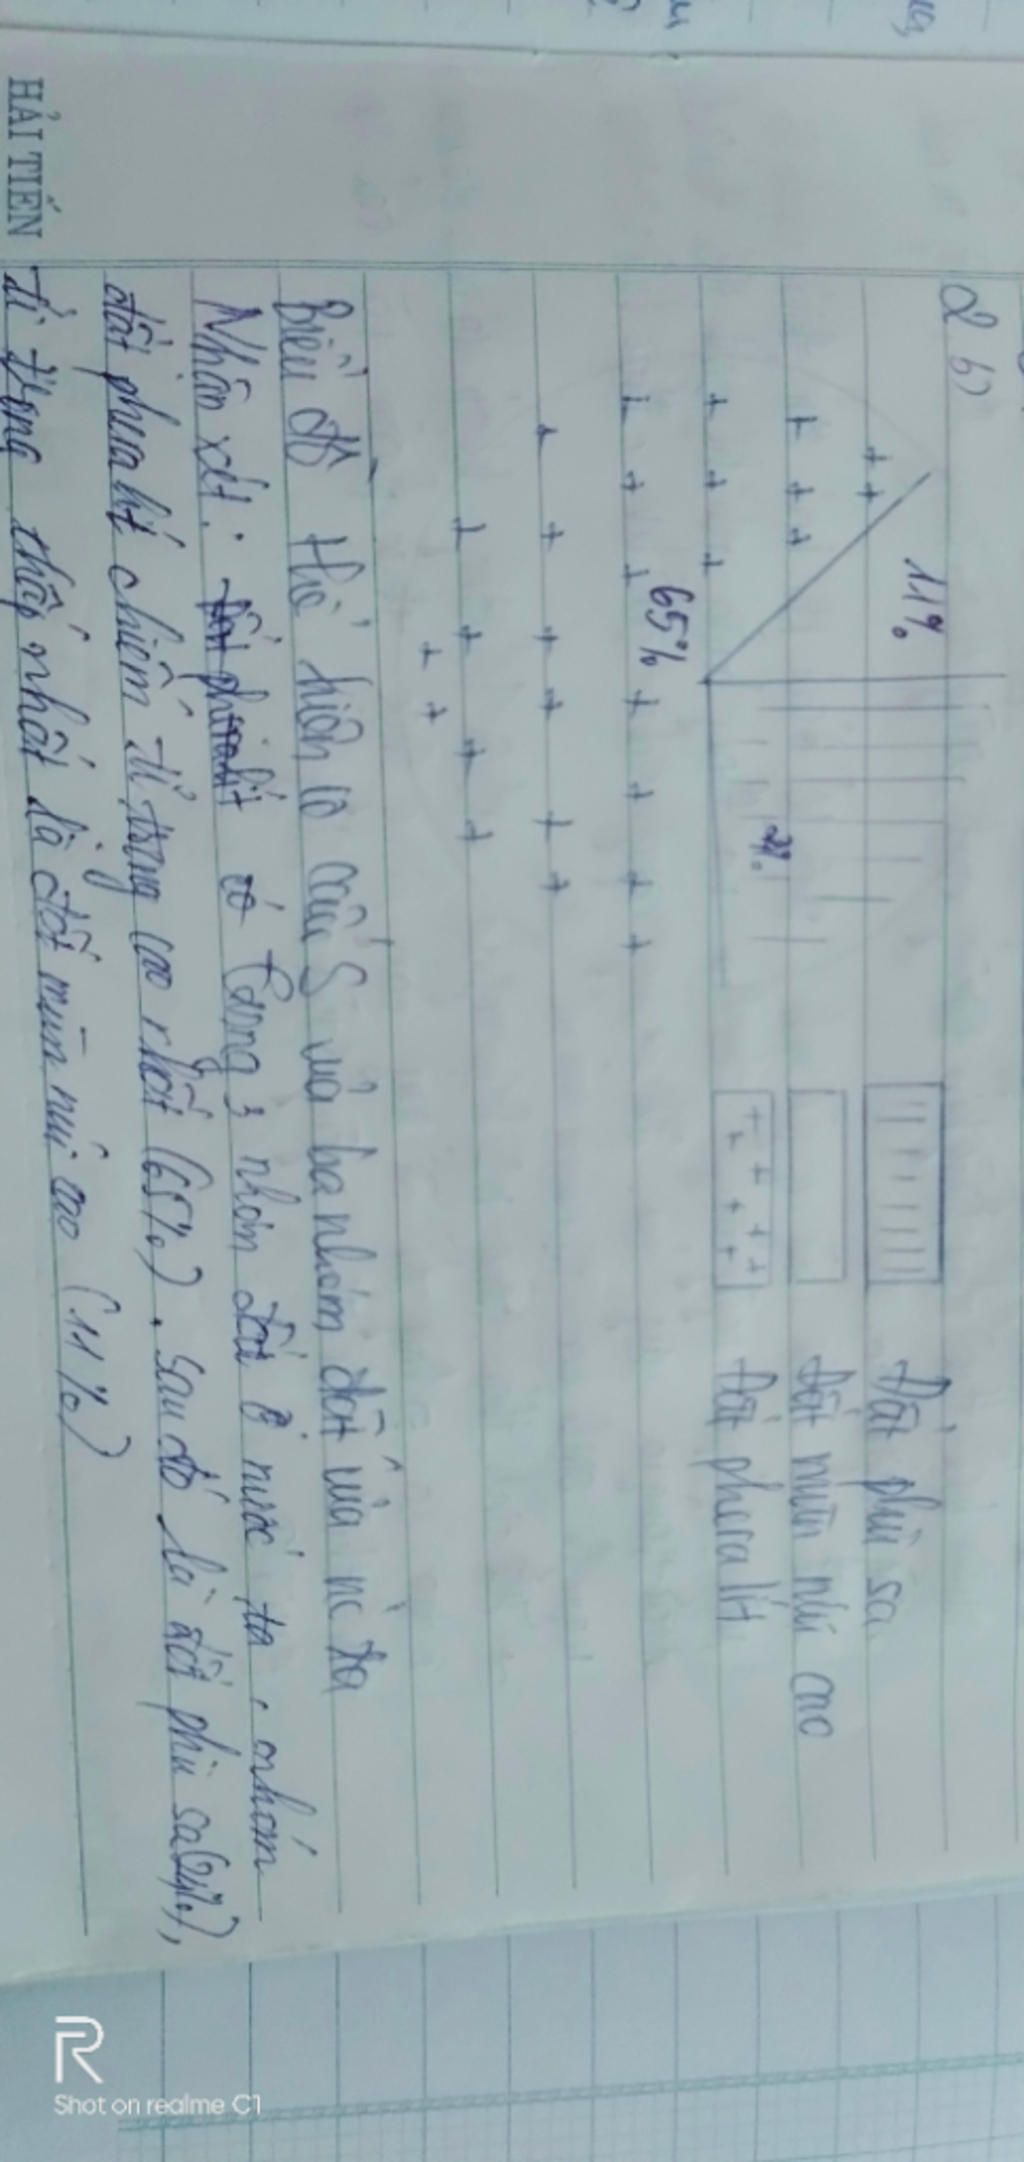 2 b)
11%
24%
65%
Đất phù sa
Đất mùn núi cao
Đất pheralit
Biểu đồ thể hiện cơ cấu S của ba nhóm đất của nc ta
Nhận xét: Đất pheralit có Trong 3 nhóm đất ở nước ta, nhóm
đất pheralit chiếm tỉ trọng cao nhất (65%). Sau đó là đất phù sa (24%),
tỉ trọng thấp nhất là đất mùn núi cao (11%)
HẢI TIẾN
R
Shot on realme C1